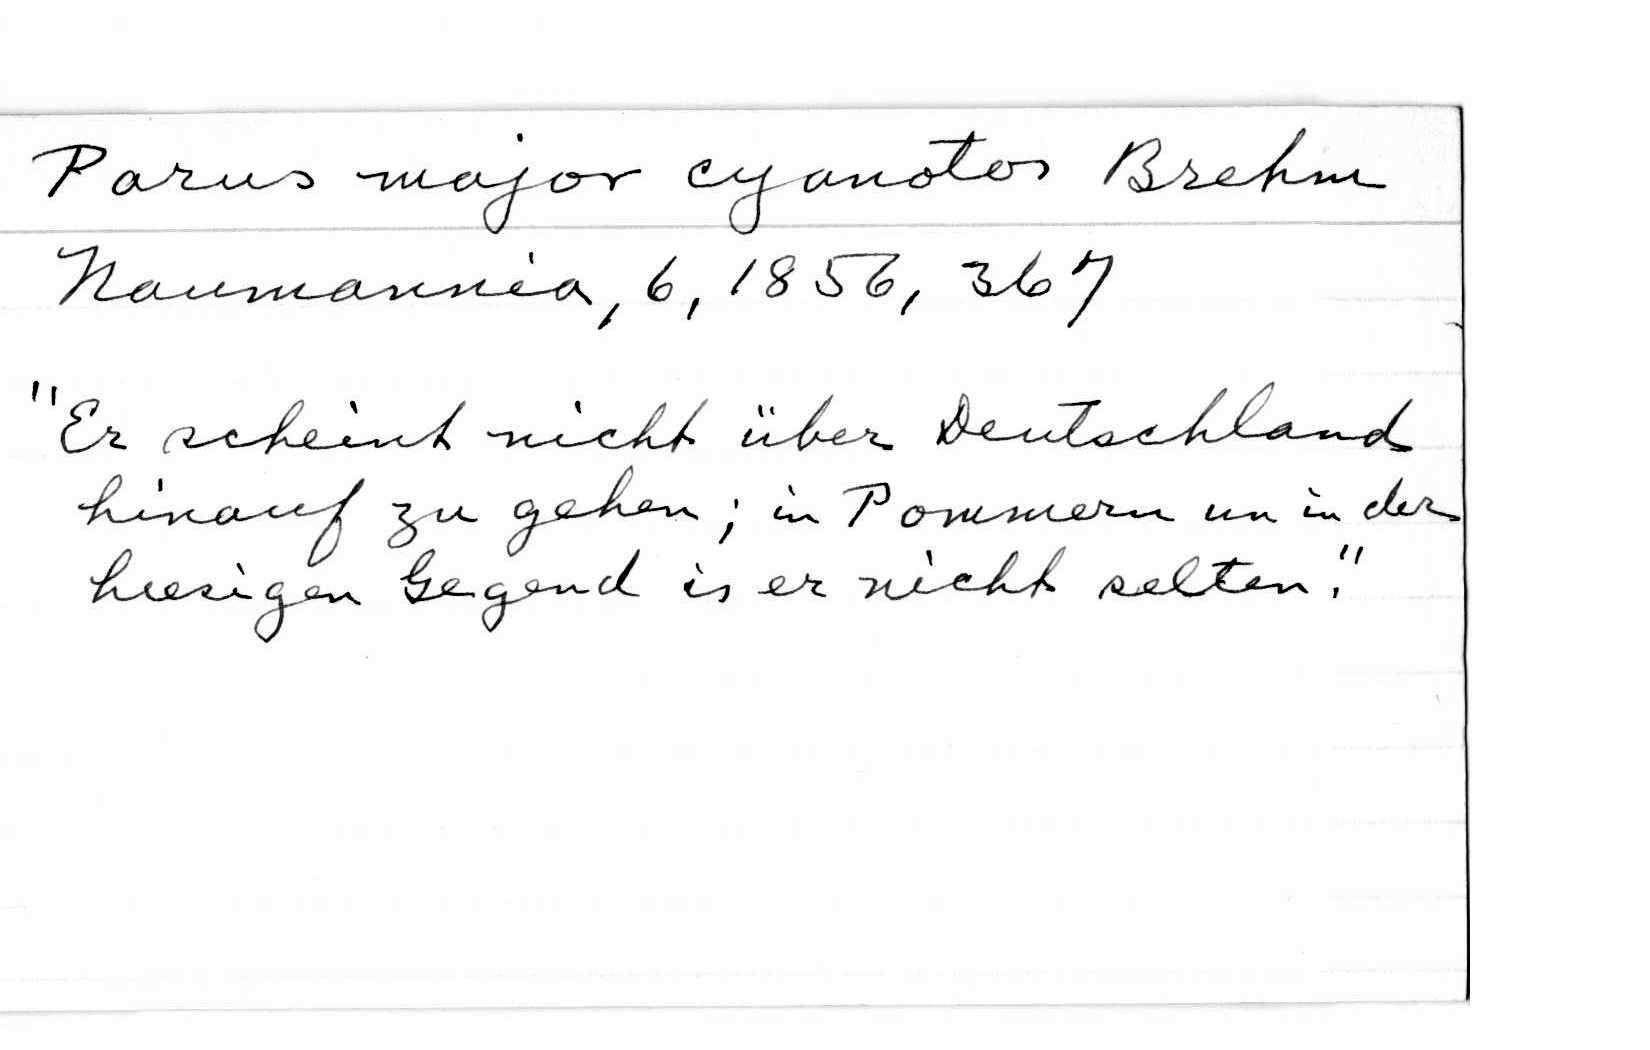 Parus major cyanotos Brehm
Naumannia, 6, 1856, 367
"Er scheint nicht über Deutschland
hinauf zu gehen; in Pommern un in der
hiesigen Gegend is er nicht selten."